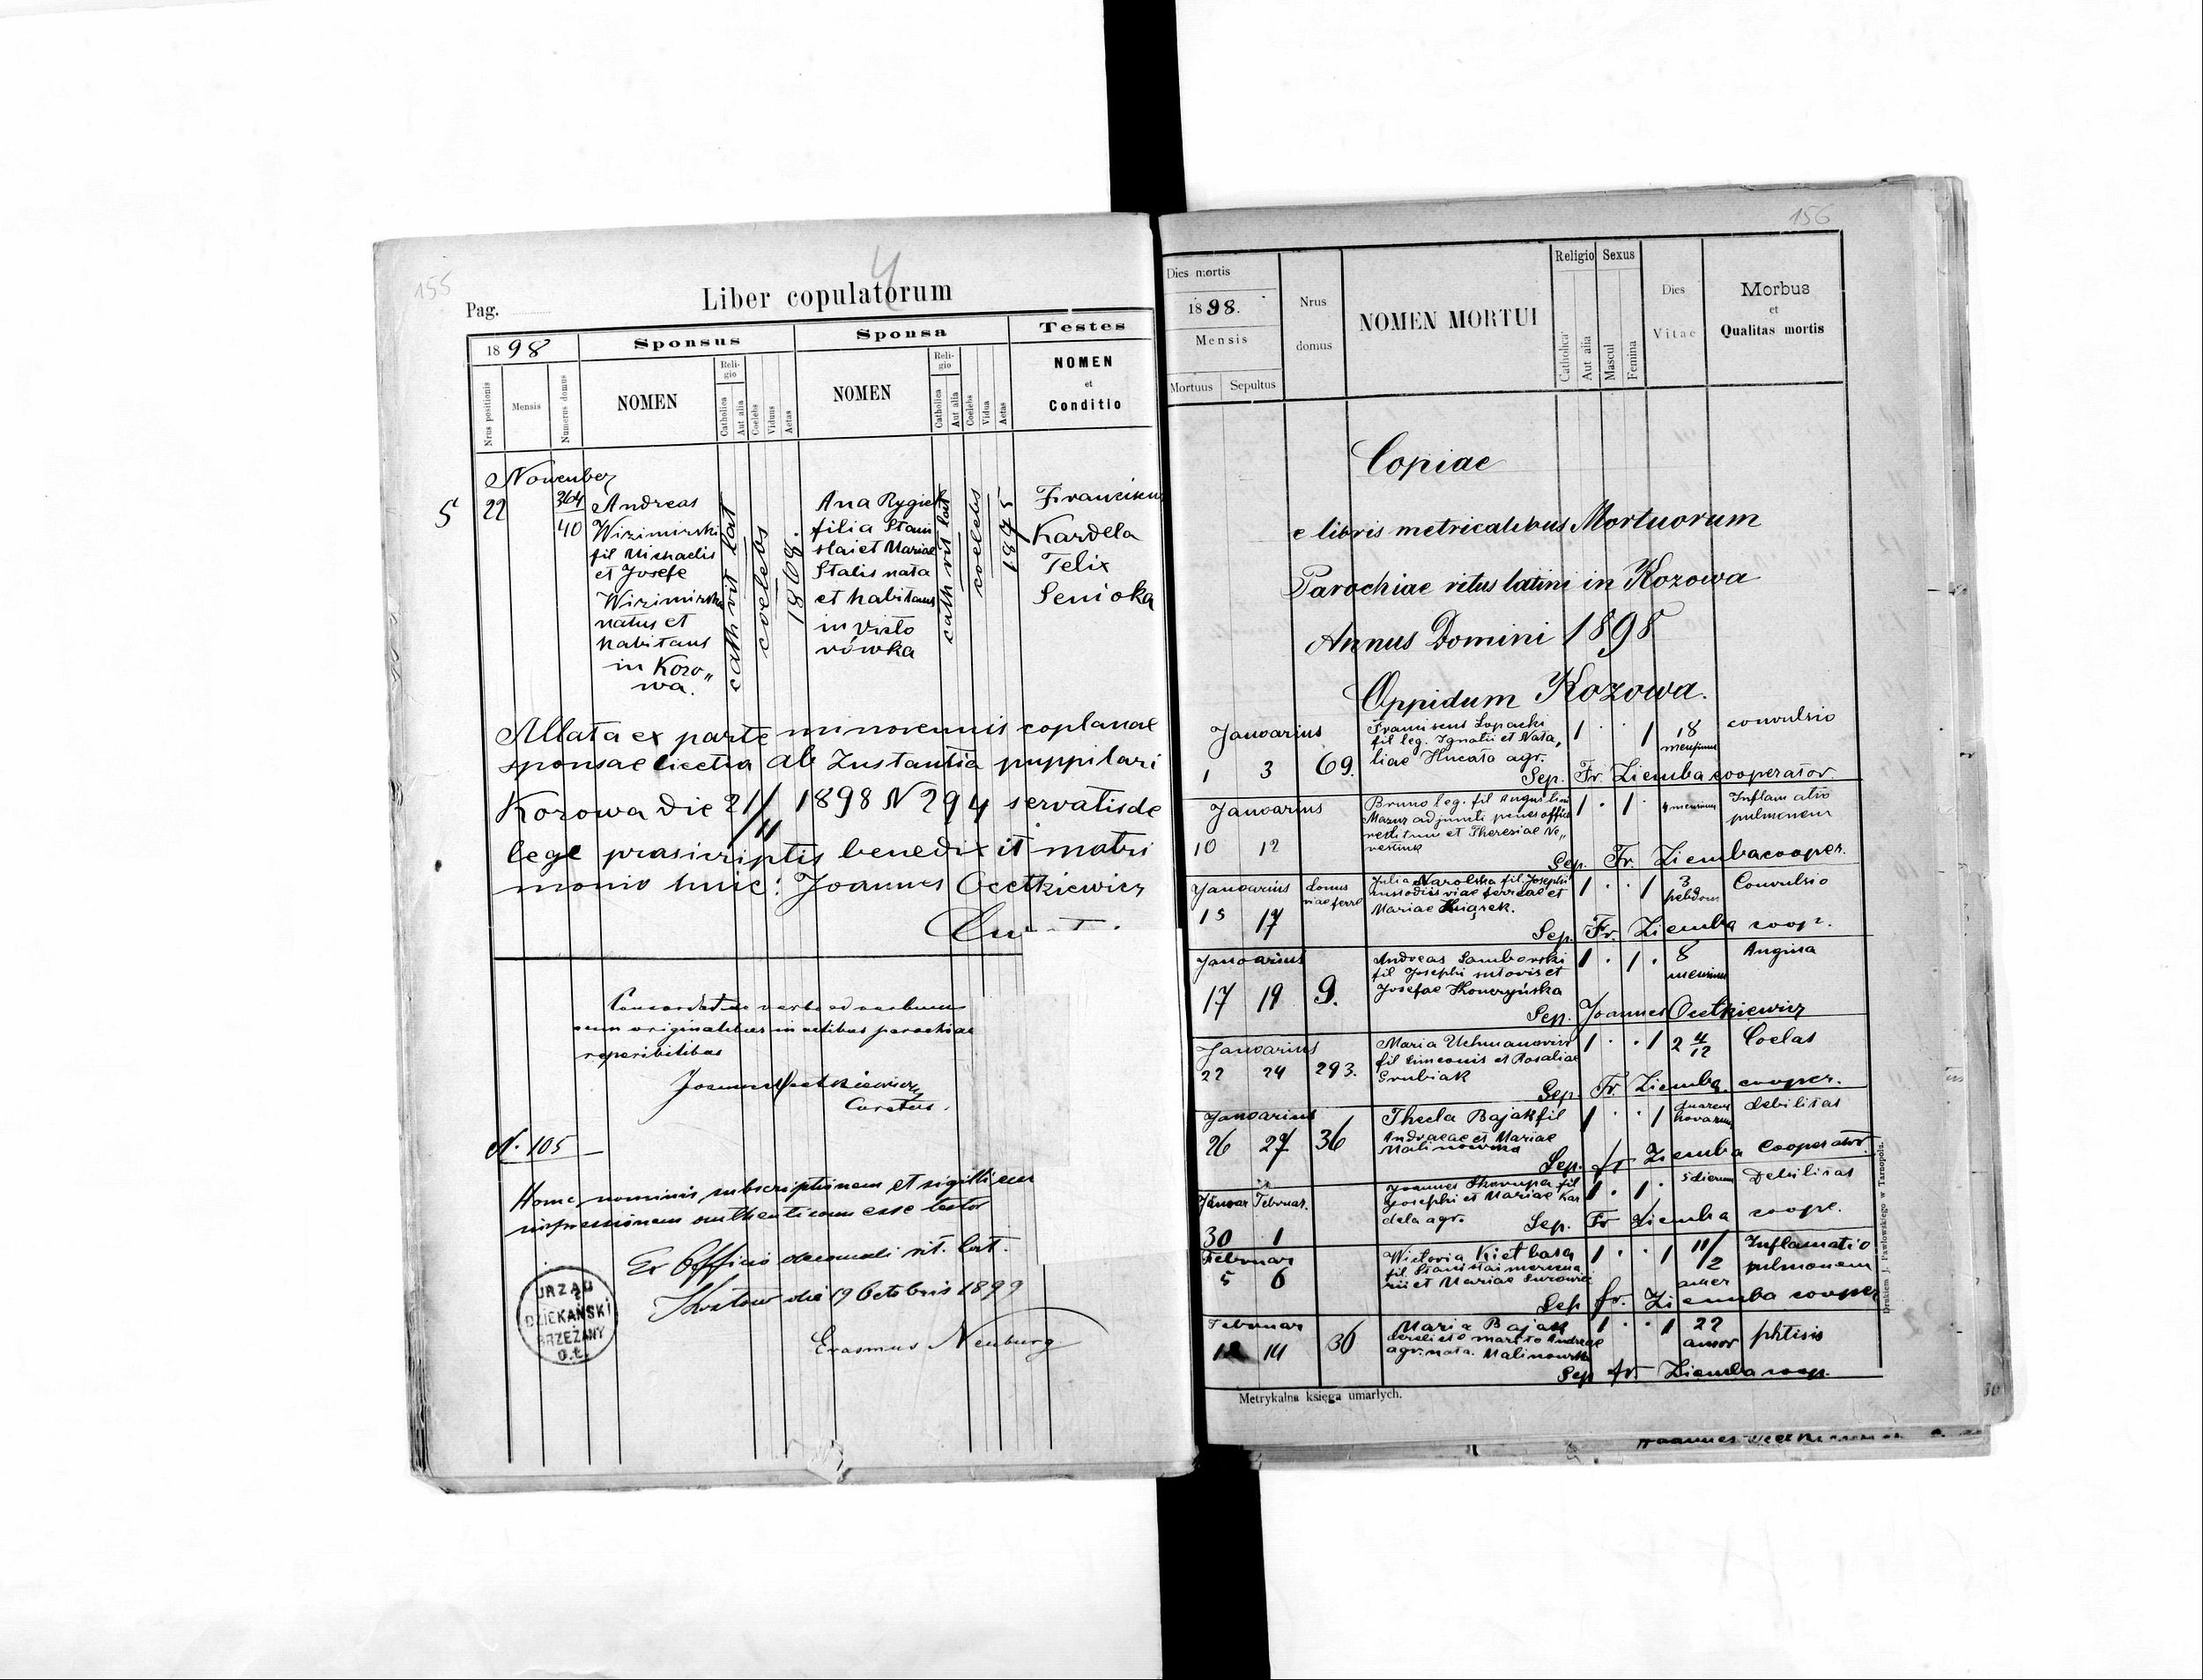 155
4
Pag.
Liber copulatorum
1898
Sponsus
Sponsa
Testes
Nrus positionis
Mensis
Numerus domus
NOMEN
Religio
Catholica
Aut alia
Coelebs
Viduus
Aetas
NOMEN
Religio
Catholica
Aut alia
Coelebs
Vidua
Aetas
NOMEN
et
Conditio
November
5
22
364
40
Andreas
Wizimirski
fil Michaelis
et Josefe
Wizimirska
natus et
habitans
in Kozo„
wa.
cath rit lat
coelebs
1868.
Ana Rygiel
filia Stani
slai et Mariae
Stalis nata
et habitans
in Victo
rówka
cath rit lat
coelebs
1875
Franciscus
Kardela
Felix
Senioka
Allata ex parte minorennis coplanae
sponsae licetia ab Instantia puppilari
Kozowa die 21/11 1898 N 294 servatis de
lege prasicriptis benedixit matri
monio huic: Joannes Ocetkiewicz
Concordat de verbo ad verbum
cum originalibus in actibus parochiae
reperibilibus
Joannes Ocetkiewicz
Curatus.
N. 105
Hanc nominis subscriptionem et sigilli
impressionem authenticam esse testor
Ex Officio decanali rit. lat.
die 19 Octobris 1899
Erasmus Neuburg
URZĄD
DZIEKAŃSKI
BRZEŻANY
O.Ł.
156
Dies mortis
1898.
Mensis
Mortuus
Sepultus
Nrus
domus
NOMEN MORTUI
Religio
Catholica
Aut alia
Sexus
Mascul
Femina
Dies
Vitae
Morbus
et
Qualitas mortis
Copiae
e libris metricalibus Mortuorum
Parochiae ritus latini in Kozowa
Annus Domini 1898
Oppidum Kozowa.
Januarius
1 3 69.
Franciscus Lopacki
fil leg. Ignatii et Nata„
liae Hucata agr.
1 . . 1
18
mensium
convulsio
Sep. Fr. Ziemba cooperator
Januarius
10 12
Bruno leg. fil Augustini
Mazur adjuncti penes offici
et Theresiae No„
1 . 1 .
4 mensium
Inflamatio
pulmonem
Sep. Fr. Ziemba cooper.
Januarius
15 17
domus
viae ferre
Julia Narolska fil. Josephi
custodiis viae ferreae et
Mariae Książek.
1 . . 1
3
hebdom
Convulsio
Sep. Fr. Ziemba coop.
Januarius
17 19 9.
Andreas Samborski
fil Josephi sutoris et
Josefae Konczyńska
1 . 1 .
8
mensium
Angina
Sep. Joannes Ocetkiewicz
Januarius
22 24 293.
Maria Uchmanowicz
fil Simeonis et Rosaliae
Grubiak
1 . . 1
2 4/12
Coelas
Sep. Fr. Ziemba cooper.
Januarius
26 27 36
Thecla Bajak fil
Andreae et Mariae
Malinowska
1 . . 1
quarum
horarum
debilitas
Sep. fr Ziemba cooperator
Januar Februar.
30 1
Joannes Skorupa fil
Josephi et Mariae Kar
dela agr.
1 . 1 .
5 dierum
Debilitas
Sep. Fr Ziemba coope.
Februar
5 6
Wictoria Kiełbasa
fil. Stanislai mercena
rii et Mariae Surowiec
1 . . 1
11/2
Inflamatio
pulmonem
Sep fr. Ziemba cooper
Februar
12 14 36
Maria Bajak
derelicto marito Andreae
agr. nata. Malinowska
1 . . 1
22
annor
phtisis
Sep fr. Ziemba coop.
Metrykalna księga umarłych.
Drukiem J. Pawłowskiego w Tarnopolu.
30